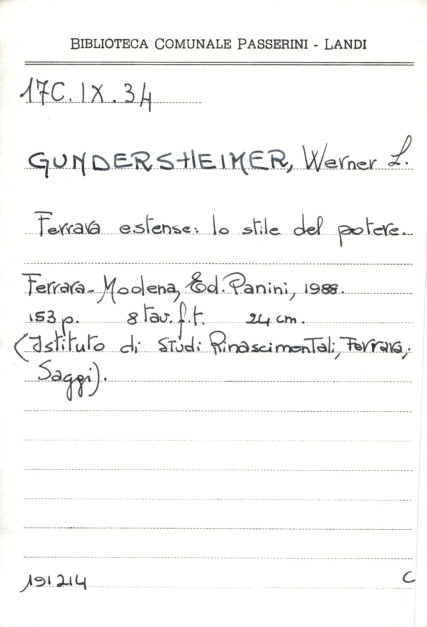 BIBLIOTECA COMUNALE PASSERINI - LANDI
17C.IX.34
GUNDERSHEIMER, Werner L.
Ferrara estense: lo stile del potere...
Ferrara-Modena, Ed. Panini, 1988.
153 p. 8 tav. f.t. 24 cm.
(Istituto di Studi Rinascimentali, Ferrara;
Saggi).
191214 C